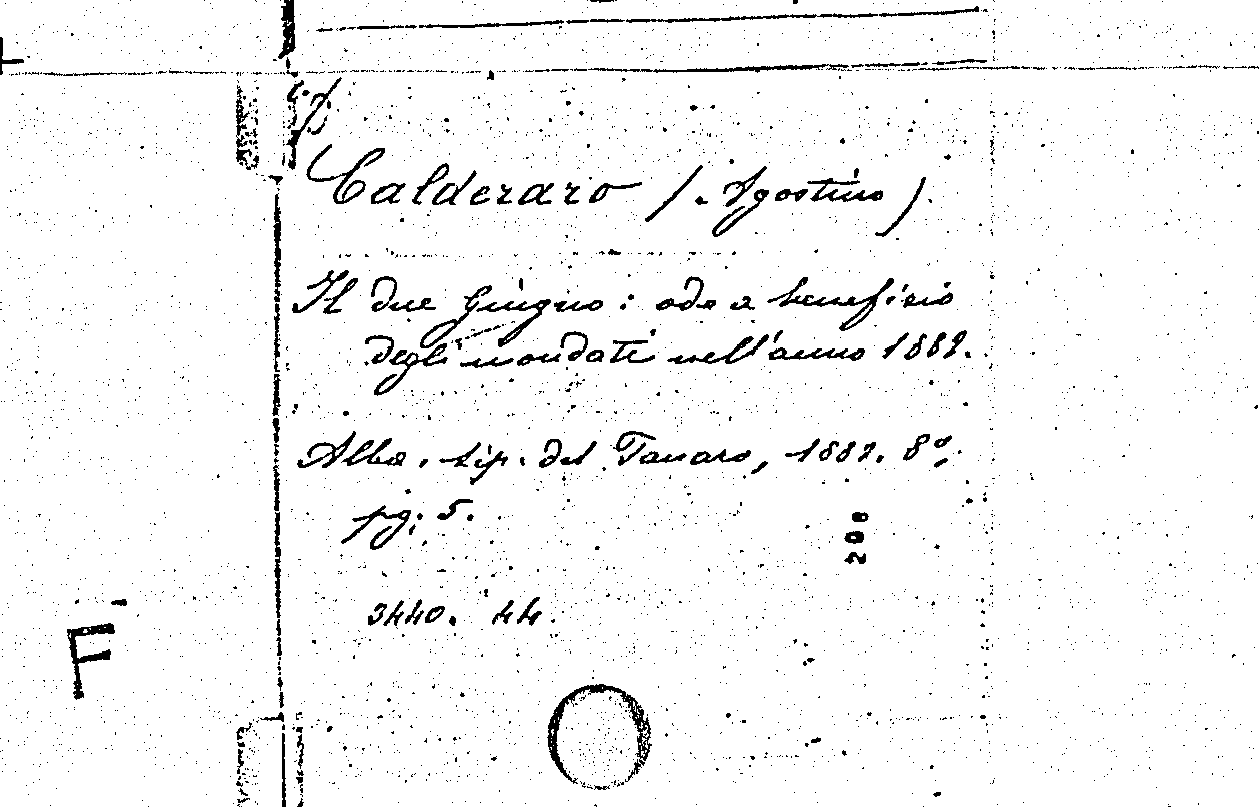 Calderaro (Agostino).
Il due Giugno: ode a beneficio
degli inondati nell'anno 1882.
Alba. tip. del Tanaro, 1882. 8º,
pg. 5.
200
3440. 44.
F